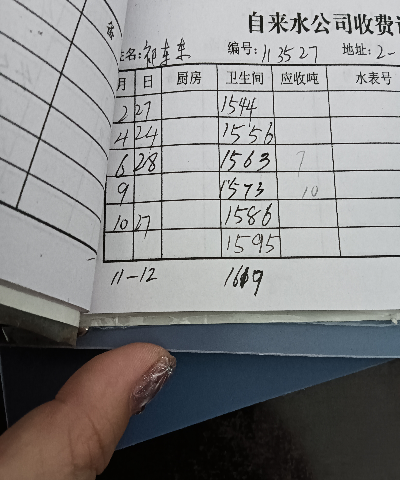 自来水公司收费
姓名: 编号: 113527 地址: 2-
月 日 厨房 卫生间 应收吨 水表号
2 27 1544
4 24 1556
6 28 1563 7
9 1573 10
10 27 1586
1595
11-12 1619